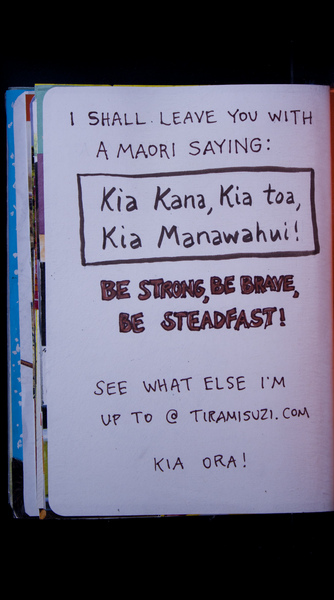 I SHALL LEAVE YOU WITH
A MAORI SAYING:
Kia Kana, Kia toa,
Kia Manawahui!
BE STRONG, BE BRAVE,
BE STEADFAST!
SEE WHAT ELSE I'M
UP TO @ TIRAMISUZI.COM
KIA ORA!